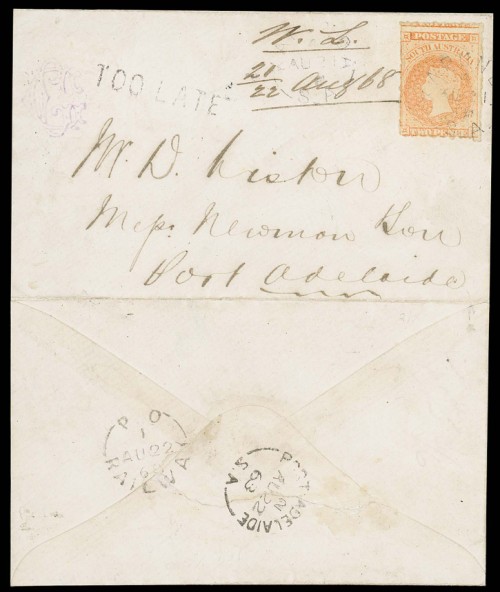 W. L.
20
22 Aug 68
TOO LATE
POSTAGE
SOUTH AUSTRALIA
TWO PENCE
Mr. D. Niston
Messrs Newman & Son
Port Adelaide
P O
1
AU 22
RAILWAY
PORT ADELAIDE
AU 22
68
S.A